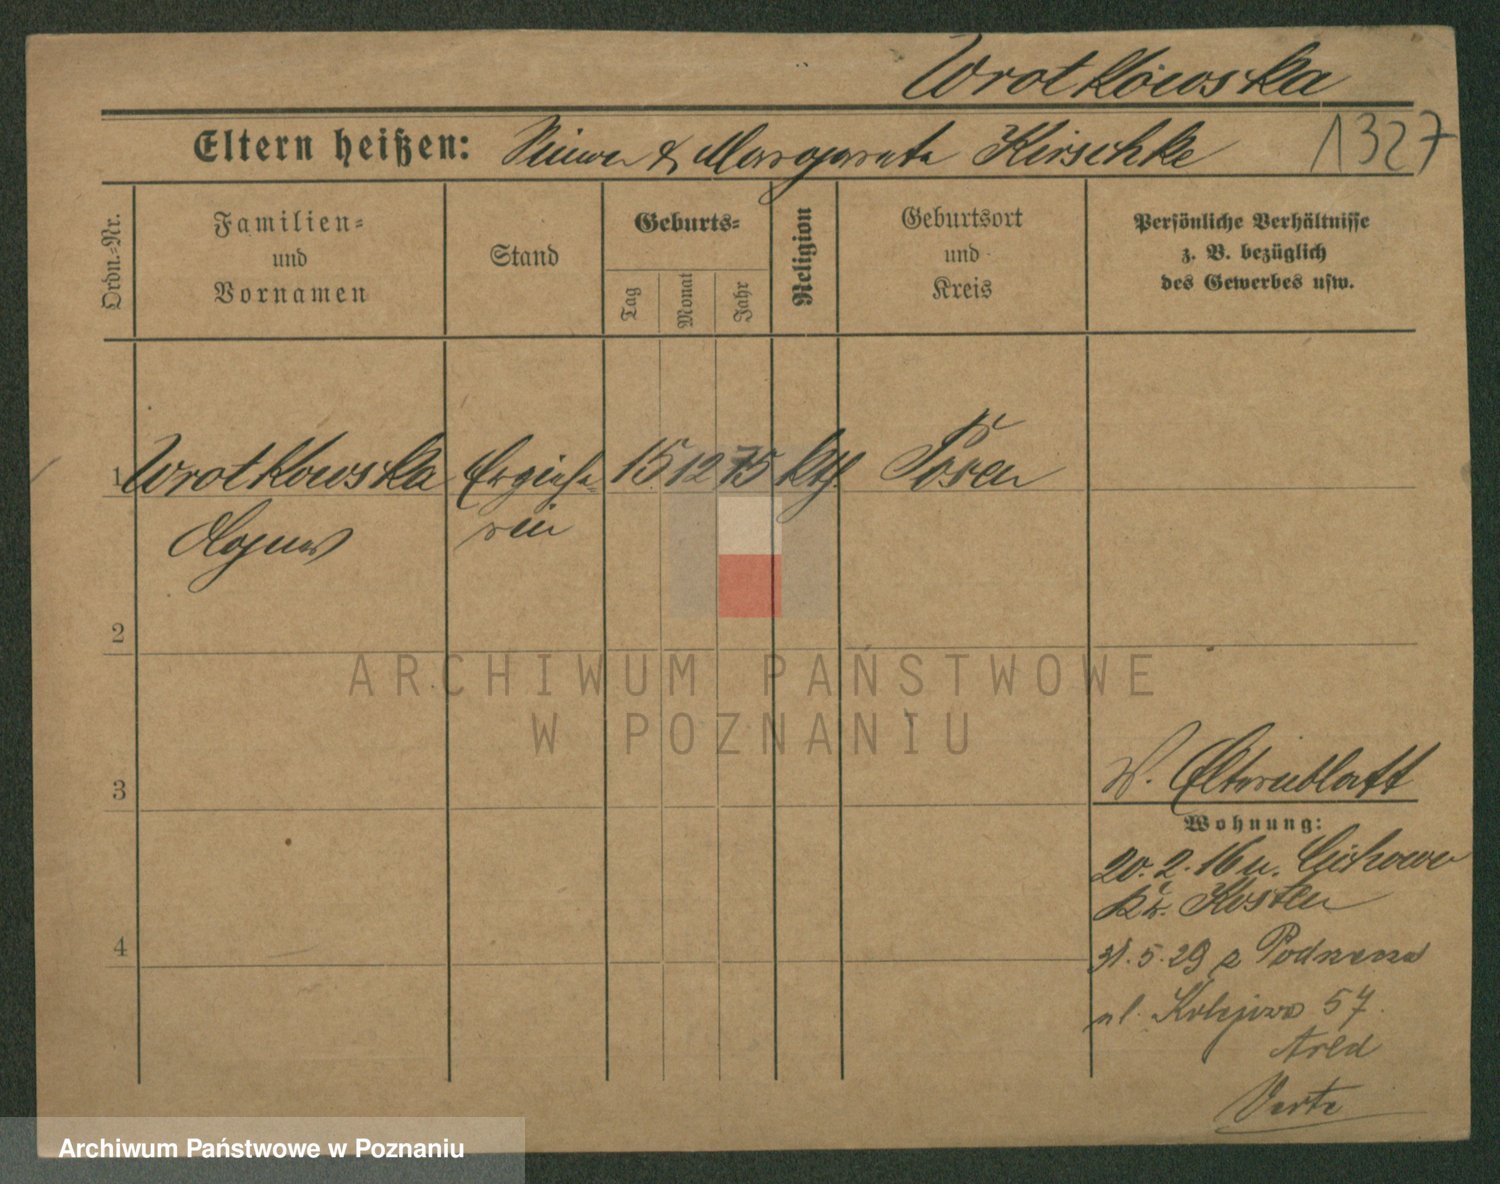 Wrotkowska
Eltern heißen: & Margareta Kirschke 1327
Ordn.-Nr.
Familien-
und
Vornamen
Stand
Geburts-
Tag
Monat
Jahr
Religion
Geburtsort
und
Kreis
Persönliche Verhältnisse
z. B. bezüglich
des Gewerbes usw.
1 Wrotkowska Erziehe- 15 12 75 kth. Posen
Agnes rin
2
3
4
W. Elternblatt
Wohnung:
20. 2. 16 n. Cichowo
Kr. Kosten
31. 5. 29 z
ul. Kolejowa 57
Verte
ARCHIWUM PAŃSTWOWE
W POZNANIU
Archiwum Państwowe w Poznaniu